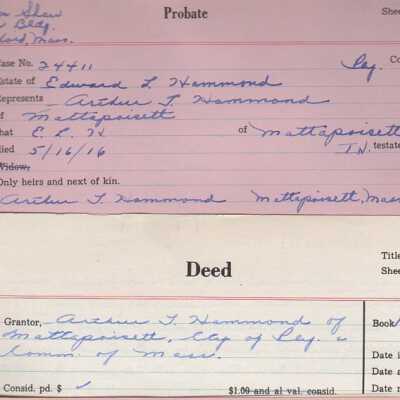 Probate
Shee
Shaw
Bldg.
ford, Mass.
ase No. 24411
Co
state of Edward L. Hammond
Represents Arthur T. Hammond
f Mattapoisett
hat E. L. H of Mattapoisett
lied 5/16/16 testate
Widow,
Only heirs and next of kin.
Arthur T. Hammond Mattapoisett, Mass
Deed
Title
Shee
Grantor, Arthur T. Hammond of
Mattapoisett, Cty of Ply. &
Comm. of Mass.
Book
Date i
Date a
Date r
Consid, pd. $ ✓
$1.00 and al val. consid.